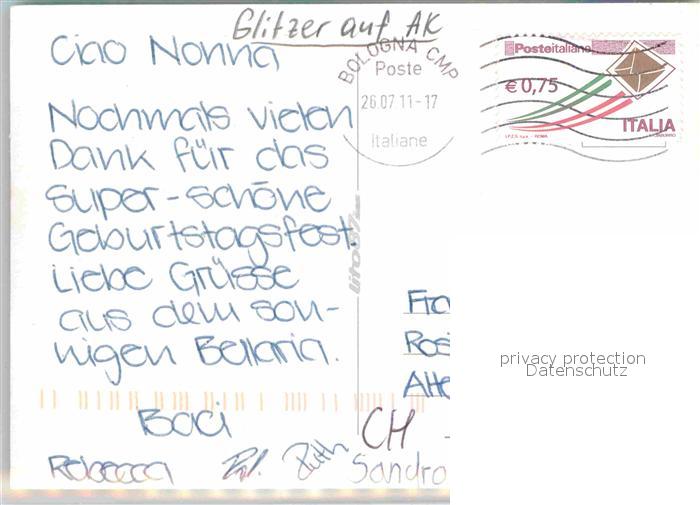 Glitzer auf AK
Ciao Nonna
Nochmals vielen
Dank für das
super-schöne
Geburtstagsfest.
Liebe Grüsse
aus dem son-
nigen Bellaria.
Baci
Rebecca Ruth Sandro
BOLOGNA CMP
Poste
26.07 11-17
Italiane
Posteitaliane
€ 0,75
ITALIA
Fra
Rosi
Alte
CH
privacy protection
Datenschutz